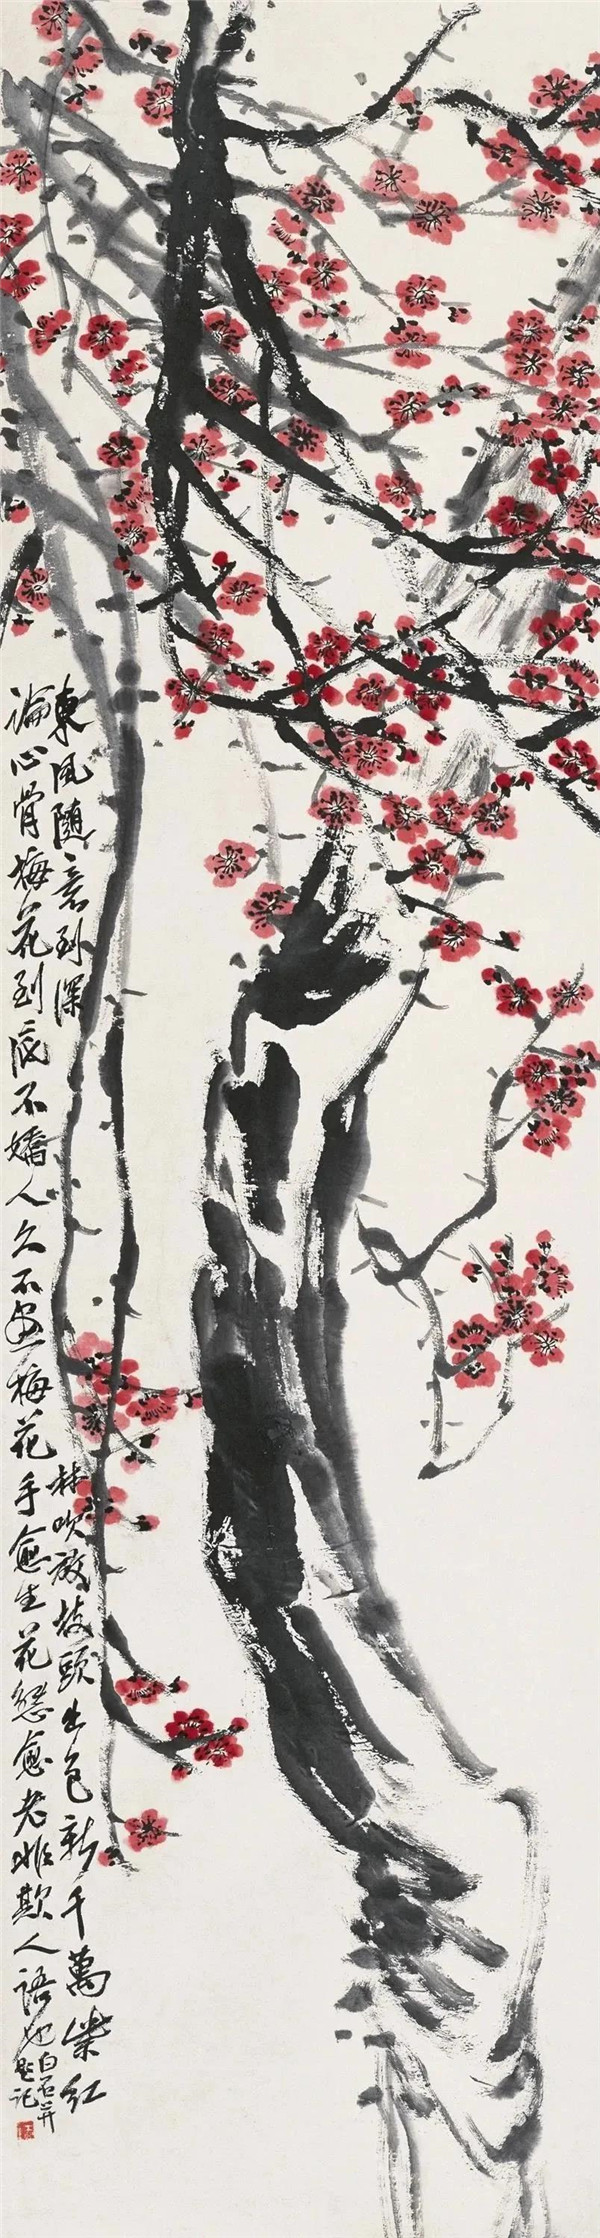 東風隨意到深林吹放枝頭出色新千萬紫紅
論心骨梅花到底不嬌人久不畫梅花手愈生花態愈老非欺人語也
白石并
題記